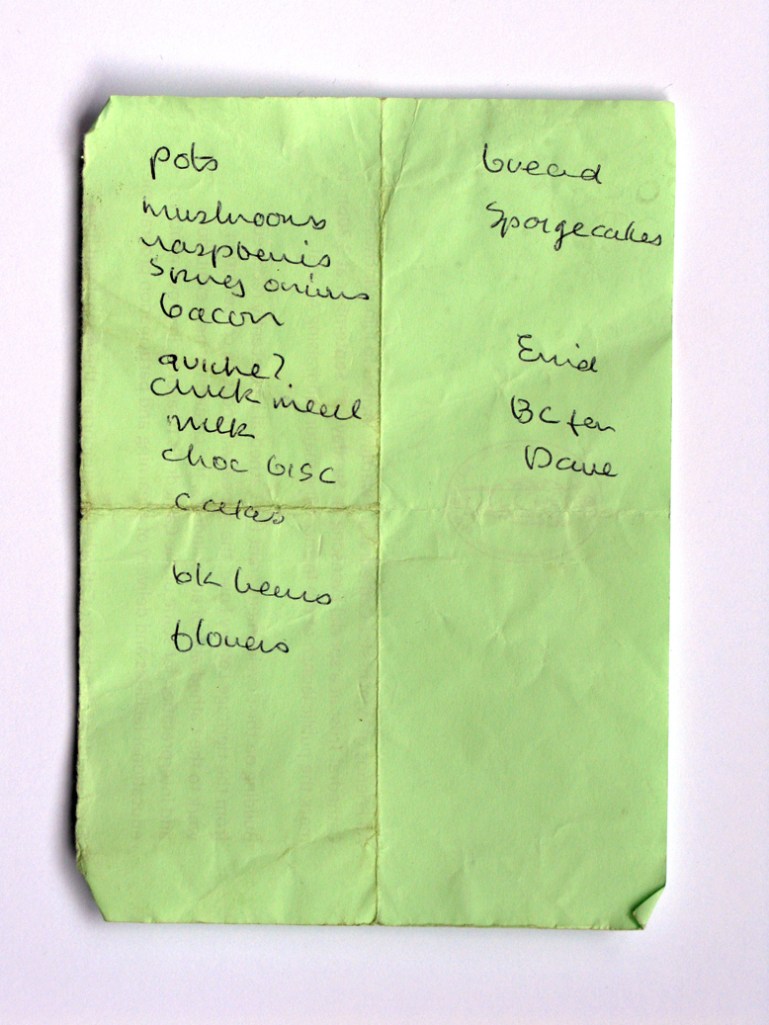 pots
mushrooms
raspberris
spring onions
bacon
quiche?
chick meal
milk
choc bisc
cakes
bk beans
flowers
bread
Spongecakes
Enid
BC fen
Dave